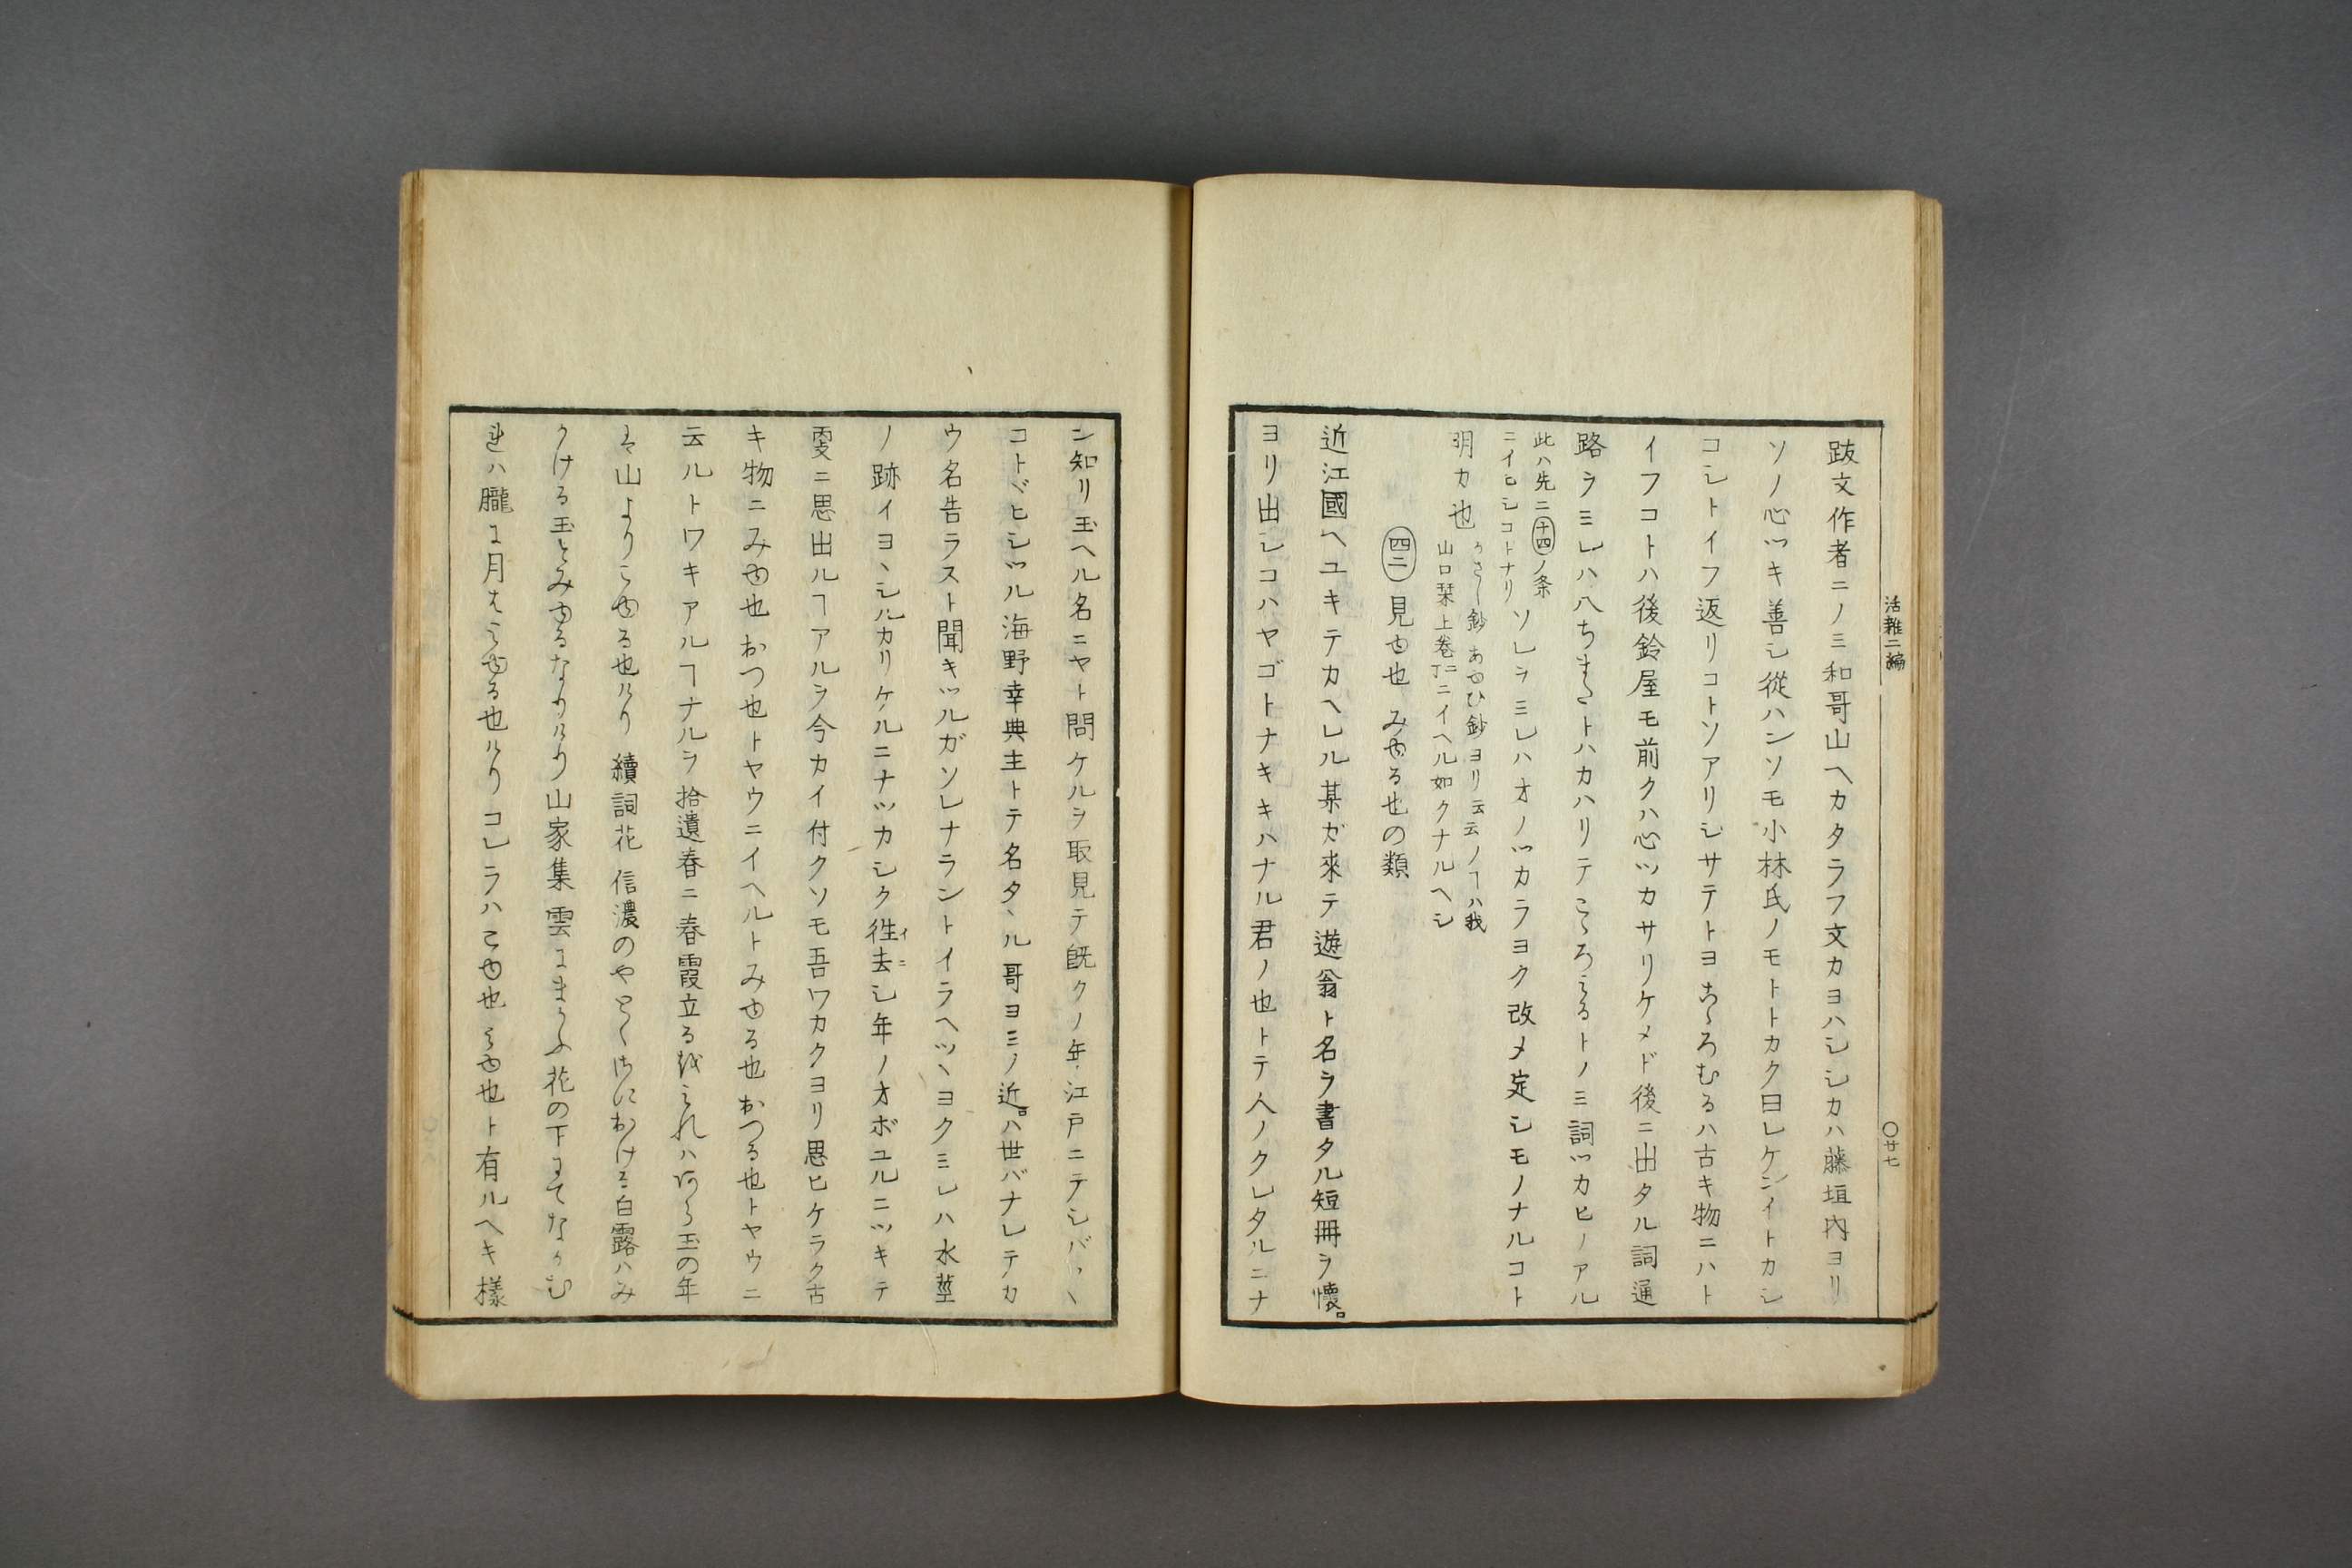 活雜二編
〇廿七
跋文作者ニノミ和哥山ヘカタラフ文カヨハシシカハ藤垣内ヨリ
ソノ心ツキ善シ從ハンソモ小林氏ノモトトカク曰レケンイトカシ
コシトイフ返リコトソアリシサテトヨこゝろむるハ古キ物ニハト
イフコトハ後鈴屋モ前クハ心ツカサリケメド後ニ出タル詞通
路ラミレハ八ちまたトハカハリテこゝろみるトノミ詞ツカヒノアル
此ハ先ニ十四ノ条
ニイヒシコトナリ
ソレラミレハオノツカラヨク改メ定シモノナルコト
明カ也
かさし鈔あゆひ鈔ヨリ云云ノヿハ我
山口栞上巻二丁ニイヘル如クナルヘシ
四二 見ゆ也 みゆる也の類
近江國ヘユキテカヘレル某ガ來テ遊翁ト名ラ書タル短冊ヲ懷。
ヨリ出シコハヤゴトナキキハナル君ノ也トテ人ノクレタルニナ
ン知リ玉ヘル名ニヤト問ケルヲ取見テ既クノ年江戸ニテシバ〱
コトドヒシツル海野幸典主トテ名タヽル哥ヨミノ近。ハ世バナレテカ
ウ名告ラスト聞キツルガソレナラントイラヘツヽヨクミレハ水莖
ノ跡イヨヽシルカリケルニナツカシク徃去シ年ノオボユルニツキテ
イニ
雯ニ思出ルヿアルヲ今カイ付クソモ吾ワカクヨリ思ヒケラク古
キ物ニみゆ也おつ也トヤウニイヘルトみゆる也おつる也トヤウニ
云ルトワキアルヿナルヲ拾遺春ニ春霞立るをみれハあら玉の年
は山よりこゆる也けり 續詞花 信濃のやとくさにおける白露ハみ
かける玉とみゆるなりけり山家集 雲にまかふ花の下にてなかむ
れハ朧に月はみゆる也けり コレラハこゆ也 みゆ也ト有ルヘキ様